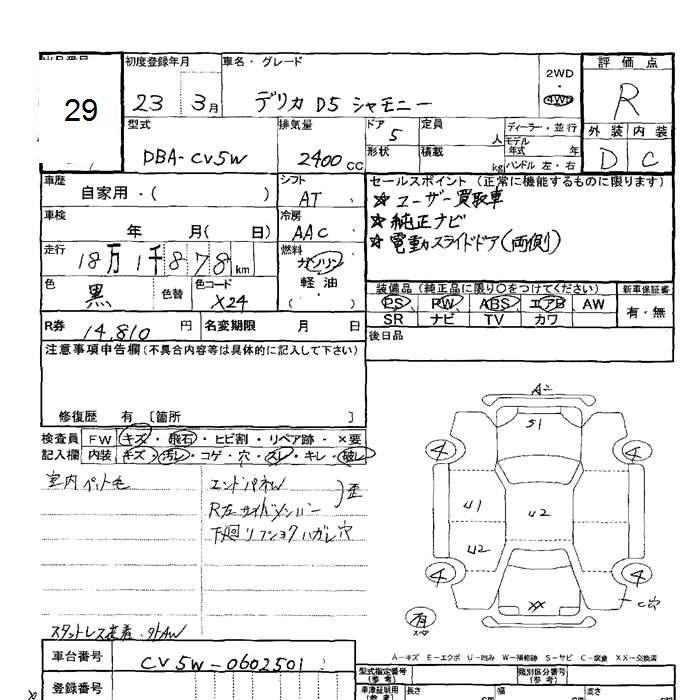 29
初度登録年月
23 3月
車名・グレード
デリカ D5 シャモニー
2WD
・
4WD
評価点
R
外装 内装
D C
型式
DBA-CV5W
排気量
2400CC
ドア
5
定員
人
形状
積載
kg
ディーラー・並行
モデル年式 年
ハンドル 左・右
車歴
自家用・( )
シフト
AT
セールスポイント(正常に機能するものに限ります)
☆ ユーザー買取車
☆ 純正ナビ
☆ 電動スライドドア(両側)
車検
年 月( 日)
冷房
AAC
走行
18万1千878km
燃料
ガソリン
軽油
色
黒
色替
色コード
X24
装備品(純正品に限り○をつけてください)
新車保証書
PS PW ABS エアB AW
有・無
SR ナビ TV カワ
R券 14,810円
名変期限 月 日
後日品
注意事項申告欄(不具合内容等は具体的に記入して下さい)
修復歴 有 [箇所 ]
検査員記入欄
FW キズ・飛石・ヒビ割・リペア跡・×要
内装 キズ・汚レ・コゲ・穴・スレ・キレ・破レ
室内ペット毛
エンドパネW
R左サイドメンバー
歪
下回リフショクハガレ穴
スタットレス装着・外AW
A2
S1
4
4
U1
U2
U2
4
4
XX
C穴
有
スペア
A-キズ E-エクボ U-凹み W-補修跡 S-サビ C-腐食 XX-交換済
車台番号
CV5W-0602501
型式指定番号
(参考)
類別区分番号
(参考)
登録番号
車庫証明用
(参考)
長さ
幅
高さ